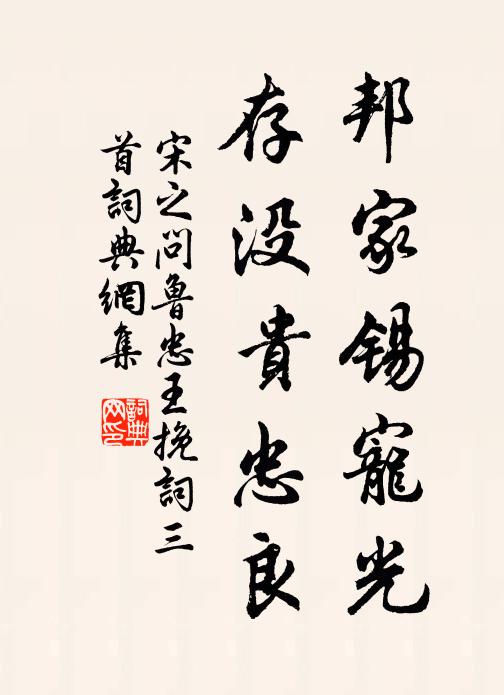 邦家錫寵光
存沒貴忠良
宋之问魯忠王挽詞三
首詞典網集
詞典
网印